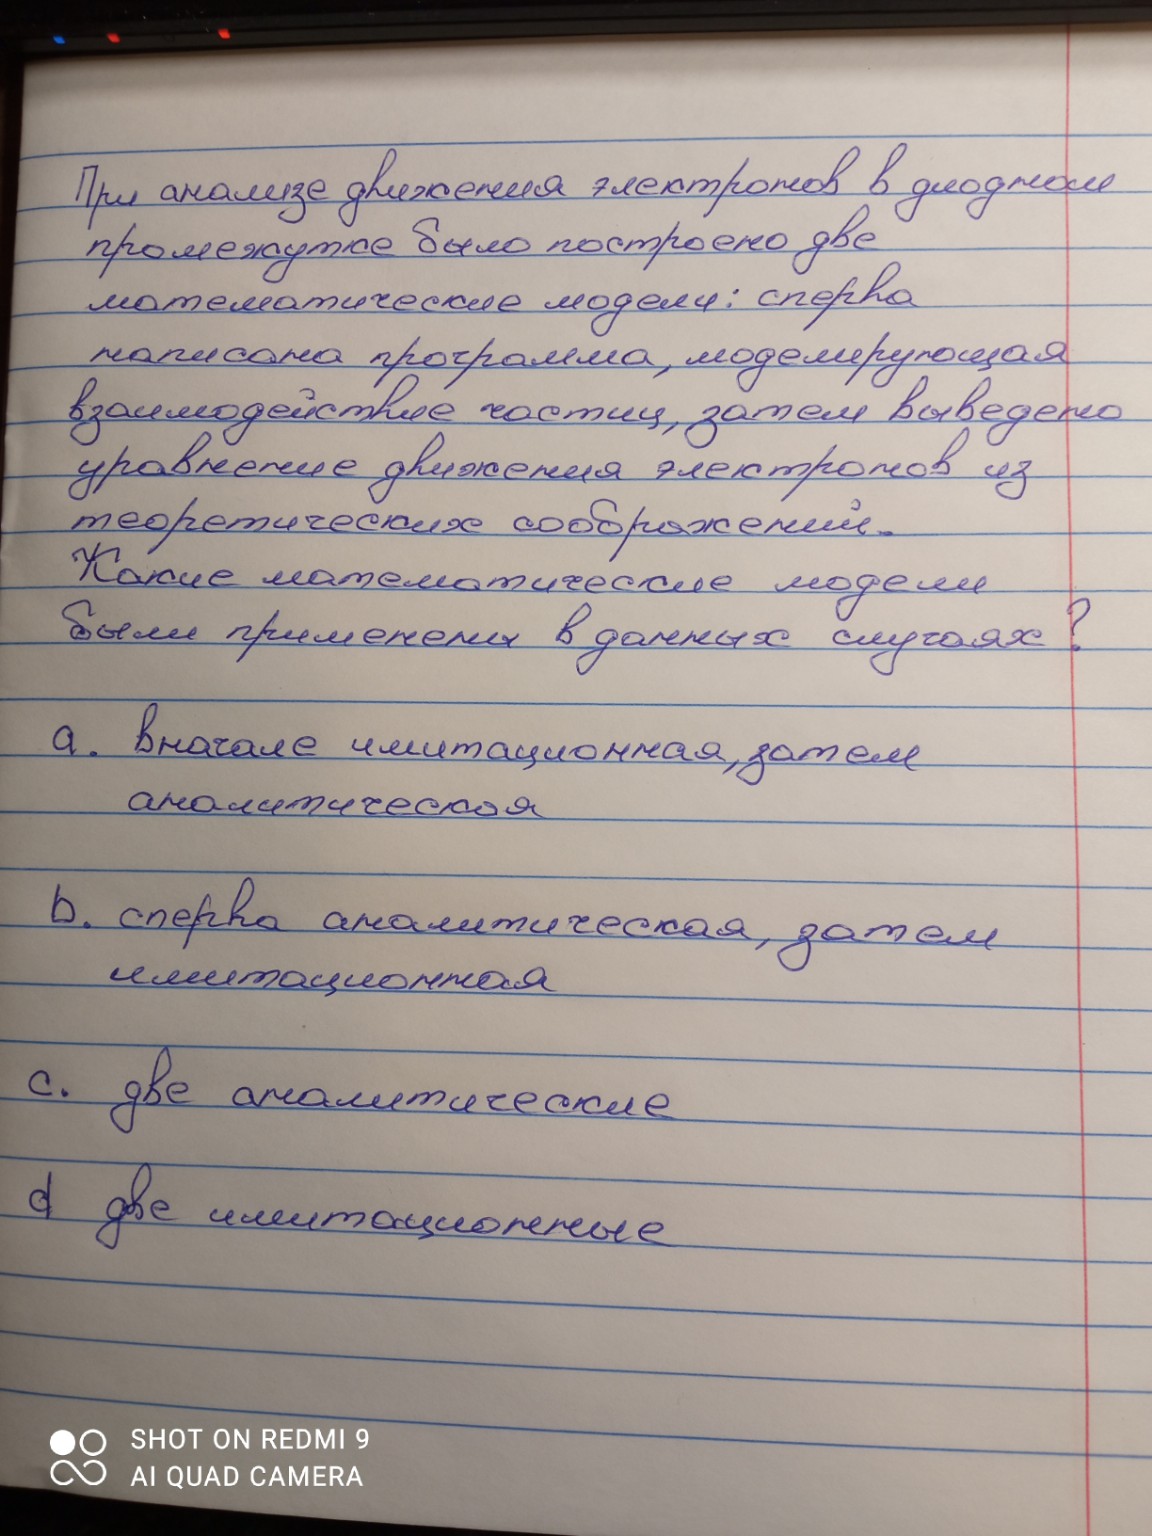 При анализе движения электронов в диодном
промежутке было построено две
математические модели: сперва
написана программа, моделирующая
взаимодействие частиц, затем выведено
уравнение движения электронов из
теоретических соображений.
Какие математические модели
были применены в данных случаях?
a. вначале имитационная, затем
аналитическая
b. сперва аналитическая, затем
имитационная
c. две аналитические
d две имитационные
SHOT ON REDMI 9
AI QUAD CAMERA